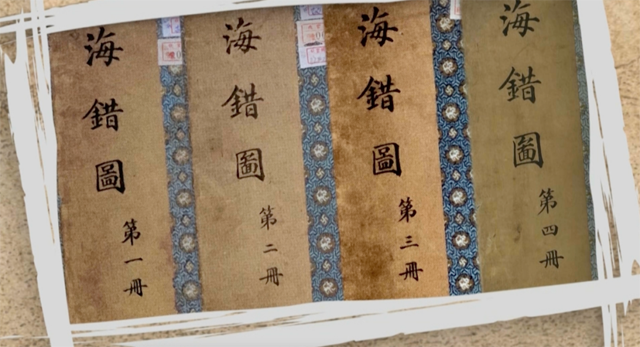 海錯圖 第一冊
海錯圖 第二冊
海錯圖 第三冊
海錯圖 第四冊